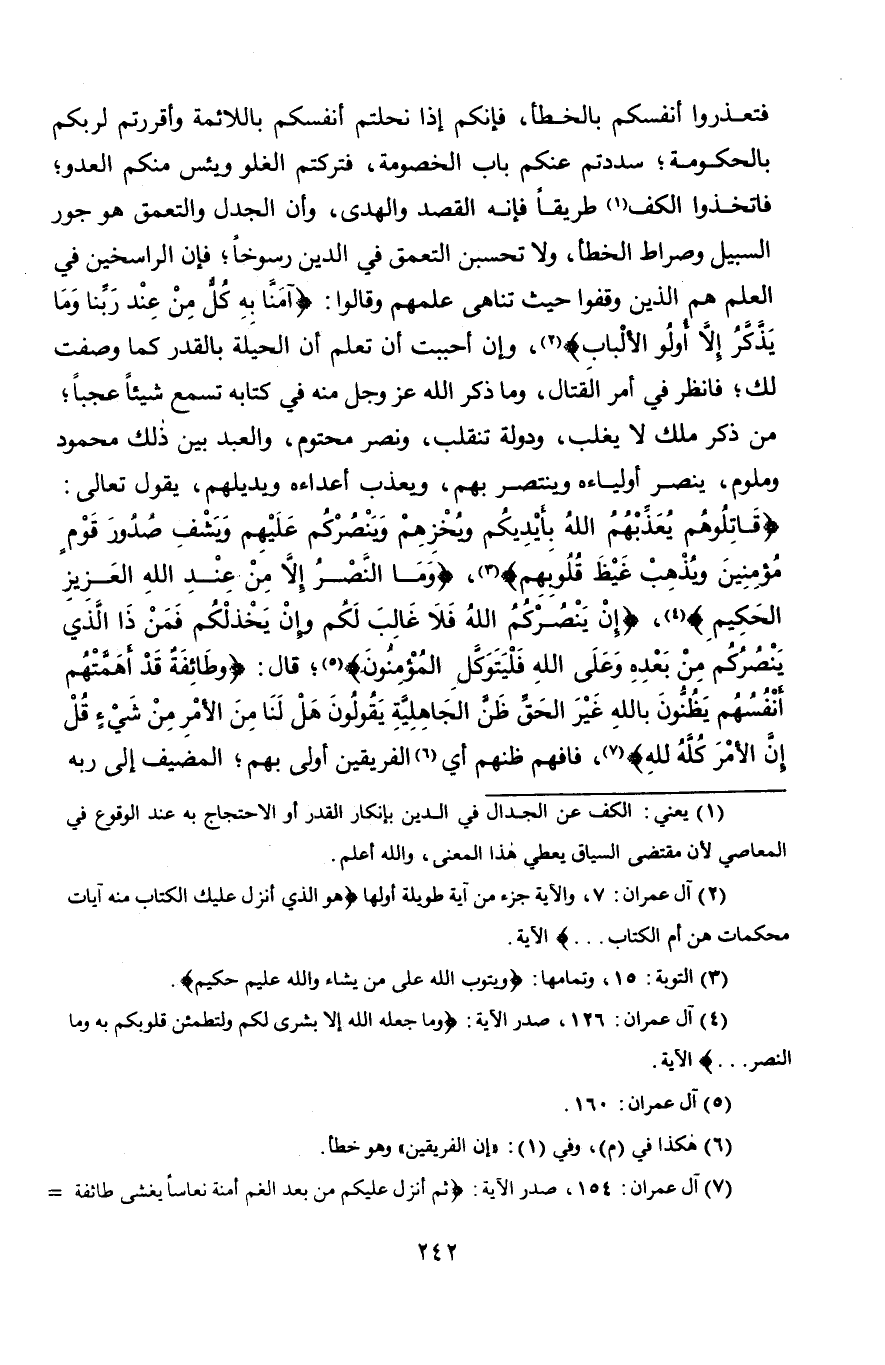 فتعـذروا أنفسكم بالخـطأ، فإنكم إذا نحلتم أنفسكم باللائمة وأقررتم لربكم
بالحكـومـة؛ سددتم عنكم باب الخصومة، فتركتم الغلو ويئس منكم العدو؛
فاتخـذوا الكف(١) طريقـاً فإنـه القصد والهدى، وأن الجدل والتعمق هو جور
السبيل وصراط الخطأ، ولا تحسبن التعمق في الدين رسوخاً؛ فإن الراسخين في
العلم هم الذين وقفوا حيث تناهى علمهم وقالوا: ﴿آمَنَّا بِهِ كُلٌّ مِنْ عِنْدِ رَبِّنا وَمَا
يَذَّكَّرُ إِلَّا أُولُو الأَلْبابِ﴾(٢)، وإن أحببت أن تعلم أن الحيلة بالقدر كما وصفت
لك؛ فانظر في أمر القتال، وما ذكر الله عز وجل منه في كتابه تسمع شيئاً عجباً؛
من ذكر ملك لا يغلب، ودولة تنقلب، ونصر محتوم، والعبد بين ذٰلك محمود
وملوم، ينصـر أوليـاءه وينتصـر بهم، ويعذب أعداءه ويديلهم، يقول تعالى:
﴿قَـاتِلُوهُم يُعَذِّبْهُمُ اللهُ بِأَيْدِيكُم ويُخْزِهِمْ وَيَنْصُرْكُم عَلَيْهِم وَيَشْفِ صُدُورَ قَوْمٍ
مُؤمِنِينَ ويُذْهِبْ غَيْظَ قُلُوبِهِم﴾(٣)، ﴿وَمَـا النَّصْـرُ إِلَّا مِنْ عِنْـدِ اللهِ العَـزِيزِ
الحَكِيمِ﴾(٤)، ﴿إِنْ يَنْصُـرْكُمُ اللهُ فَلَا غَالِبَ لَكُم وإِنْ يَخْذلْكُم فَمَنْ ذَا الَّذي
يَنْصُرُكُم مِنْ بَعْدِهِ وَعَلَى اللهِ فَلْيَتَوَكَّلِ المُؤْمِنُونَ﴾(٥)؛ قال: ﴿وطَائِفَةٌ قَدْ أَهَمَّتْهُم
أَنْفُسُهُم يَظُنُّونَ بالله غَيْرَ الحَقِّ ظَنَّ الجَاهِلِيَّةِ يَقُولُونَ هَلْ لَنَا مِنَ الأمْرِ مِنْ شَيْءٍ قُلْ
إِنَّ الأمْرَ كُلَّهُ للهِ﴾(٧)، فافهم ظنهم أي(٦) الفريقين أولى بهم؛ المضيف إلى ربه
(١) يعني: الكف عن الجـدال في الـدين بإنكار القدر أو الاحتجاج به عند الوقوع في
المعاصي لأن مقتضى السياق يعطي هٰذا المعنى، والله أعلم.
(٢) آل عمران: ٧، والآية جزء من آية طويلة أولها ﴿هو الذي أنزل عليك الكتاب منه آيات
محكمات هن أم الكتاب...﴾ الآية.
(٣) التوبة: ١٥، وتمامها: ﴿ويتوب الله على من يشاء والله عليم حكيم﴾.
(٤) آل عمران: ١٢٦، صدر الآية: ﴿وما جعله الله إلا بشرى لكم ولتطمئن قلوبكم به وما
النصر...﴾ الآية.
(٥) آل عمران: ١٦٠.
(٦) هٰكذا في (م)، وفي (١): «إن الفريقين» وهو خطأ.
(٧) آل عمران: ١٥٤، صدر الآية: ﴿ثم أنزل عليكم من بعد الغم أمنة نعاساً يغشى طائفة =
٢٤٢